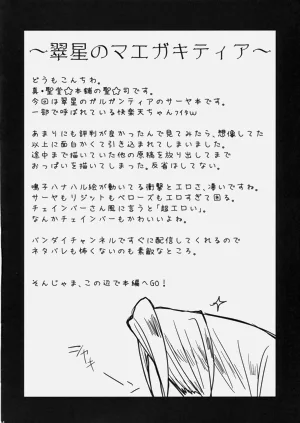 ～翠星のマエガキティア～
どうもこんちわ。
真・聖堂☆本舗の聖☆司です。
今回は翠星のガルガンティアのサーヤ本です。
一部で呼ばれている快楽天ちゃんﾌｲﾀｗ
あまりにも評判が良かったんで見てみたら、想像してた
以上に面白かくて引き込まれてしまいました。
途中まで描いていた他の原稿を放り出してまで
おっぱいを描いてしまった。反省はしてない。
鳴子ハナハル絵が動いてる衝撃とエロさ、凄いですね。
サーヤもリジットもベローズもエロすぎて困る。
チェインバーさん風に言うと「超エロい」。
なんかチェインバーもかわいいよね。
バンダイチャンネルですぐに配信してくれるので
ネタバレも怖くないのも素敵なところ。
そんじゃま、この辺で本編へGO！
シャキ